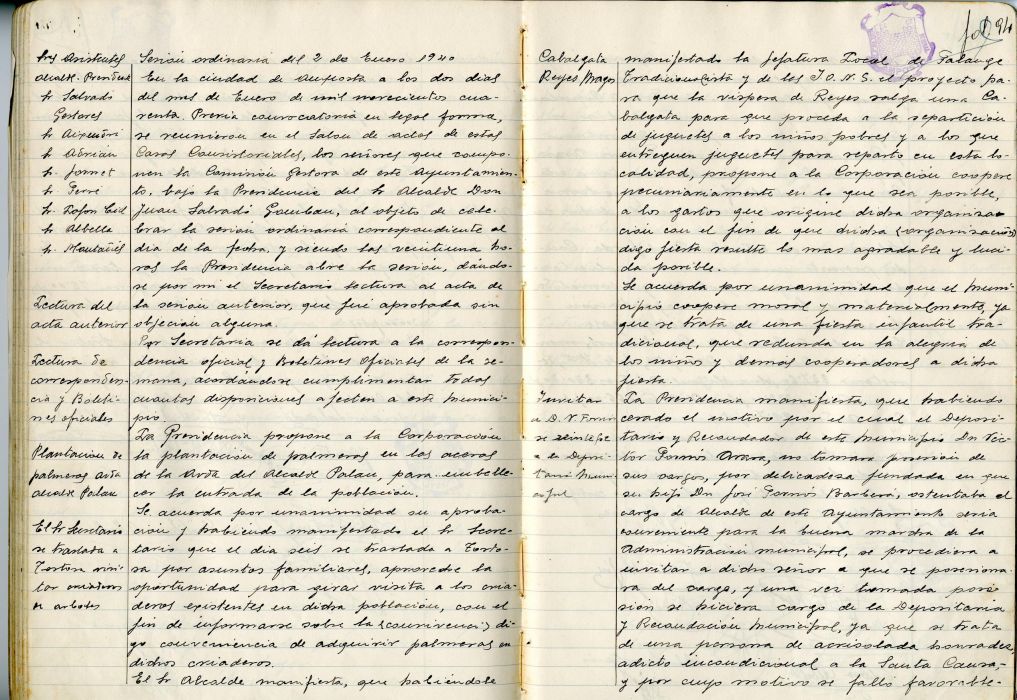 Sesión ordinaria del 2 de Enero 1940
Sres Asistentes
Alcalde-Presidente
Sr Salvadó
Gestores
Sr Adrian
Sr Fornet
Sr Ferré
Sr Albella
Sr Montañés
En la ciudad de Amposta a los dos dias
del mes de Enero de mil novecientos cua-
renta. Previa convocatoria en legal forma,
se reunieron en el Salon de actos de estas
Casas Consistoriales, los señores que compo-
nen la Comision Gestora de este Ayuntamien-
to, bajo la Presidencia del Sr Alcalde Don
Juan Salvadó Gombau, al objeto de cele-
brar la sesión ordinaria correspondiente al
dia de la fecha, y siendo las veintiuna ho-
ras la Presidencia abre la sesión, dándo-
Lectura del
acta anterior
se por mi el Secretario lectura al acta de
la sesión anterior, que fué aprobada sin
objecion alguna.
Lectura de
corresponden-
cia y Boleti-
nes oficiales
Por Secretaría se dá lectura a la correspon-
dencia oficial y Boletines Oficiales de la se-
mana, acordandose cumplimentar todas
cuantas disposiciones afecten a este Munici-
pio.
Plantacion de
palmeras avda
Alcalde Palau
La Presidencia propone a la Corporación
la plantación de palmeras en las aceras
de la Avda del Alcalde Palau, para embelle-
cer la entrada de la población.
Se acuerda por unanimidad su aproba-
El Sr Secretario
se traslada a
Tortosa
los criaderos
de arboles
cion y habiendo manifestado el Sr Secre-
tario que el dia seis se traslada a Torto-
sa por asuntos familiares, aproveche la
oportunidad para girar visita a los cria-
deros existentes en dicha población, con el
fin de informarse sobre la (convivenci) di
go conveniencia de adquirir palmeras en
dichos criaderos.
El Sr Alcalde manifiesta, que habiéndole
94
Cabalgata
Reyes Magos
manifestado la Jefatura Local de Falange
Tradicionalista y de las J.O.N.S. el proyecto pa-
ra que la vispera de Reyes salga una Ca-
balgata para que proceda a la repartición
de juguetes a los niños pobres y a los que
entreguen juguetes para reparto en esta lo-
calidad, propone a la Corporación coopere
pecuniariamente en lo que sea posible,
a los gastos que origine dicha organiza-
ción con el fin de que dicha (organización)
digo fiesta resulte lo mas agradable y luci-
da posible.
Se acuerda por unanimidad que el Muni-
cipio coopere moral y materialmente, ya
que se trata de una fiesta infantil tra-
dicional, que redunda en la alegria de
los niños y demás cooperadores a dicha
fiesta.
Invitar
a D. V. Forner
se reintegre
a la Deposi-
taria Muni-
cipal
La Presidencia manifiesta, que habiendo
cesado el motivo por el cual el Deposi-
tario y Recaudador de este Municipio Dn Vic-
tor no tomara posesion de
sus cargos, por delicadesa fundada en que
su hijo Dn José Barberá, ostentaba el
cargo de Alcalde de este Ayuntamiento seria
conveniente para la buena marcha de la
Administracion municipal, se procediera a
invitar a dicho señor a que se posesiona-
ra del cargo, y una vez tomada pose-
sion se hiciera cargo de la Depositaria
y Recaudación Municipal, ya que se trata
de una persona de acrisolada honradez,
adicto incondicional a la Santa Causa,
y por cuyo motivo se falló favorable-